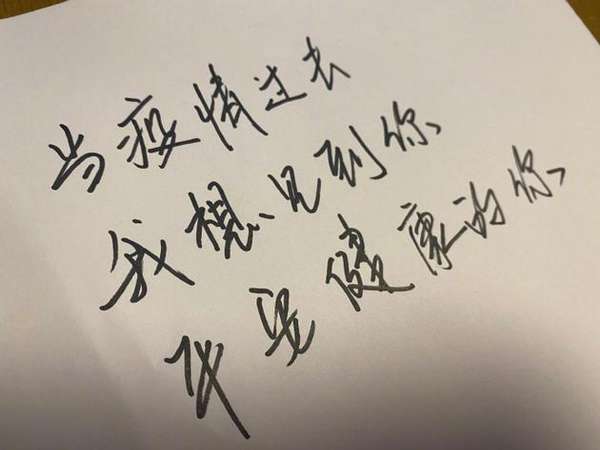 当疫情过去
我想见到你
平安健康的你